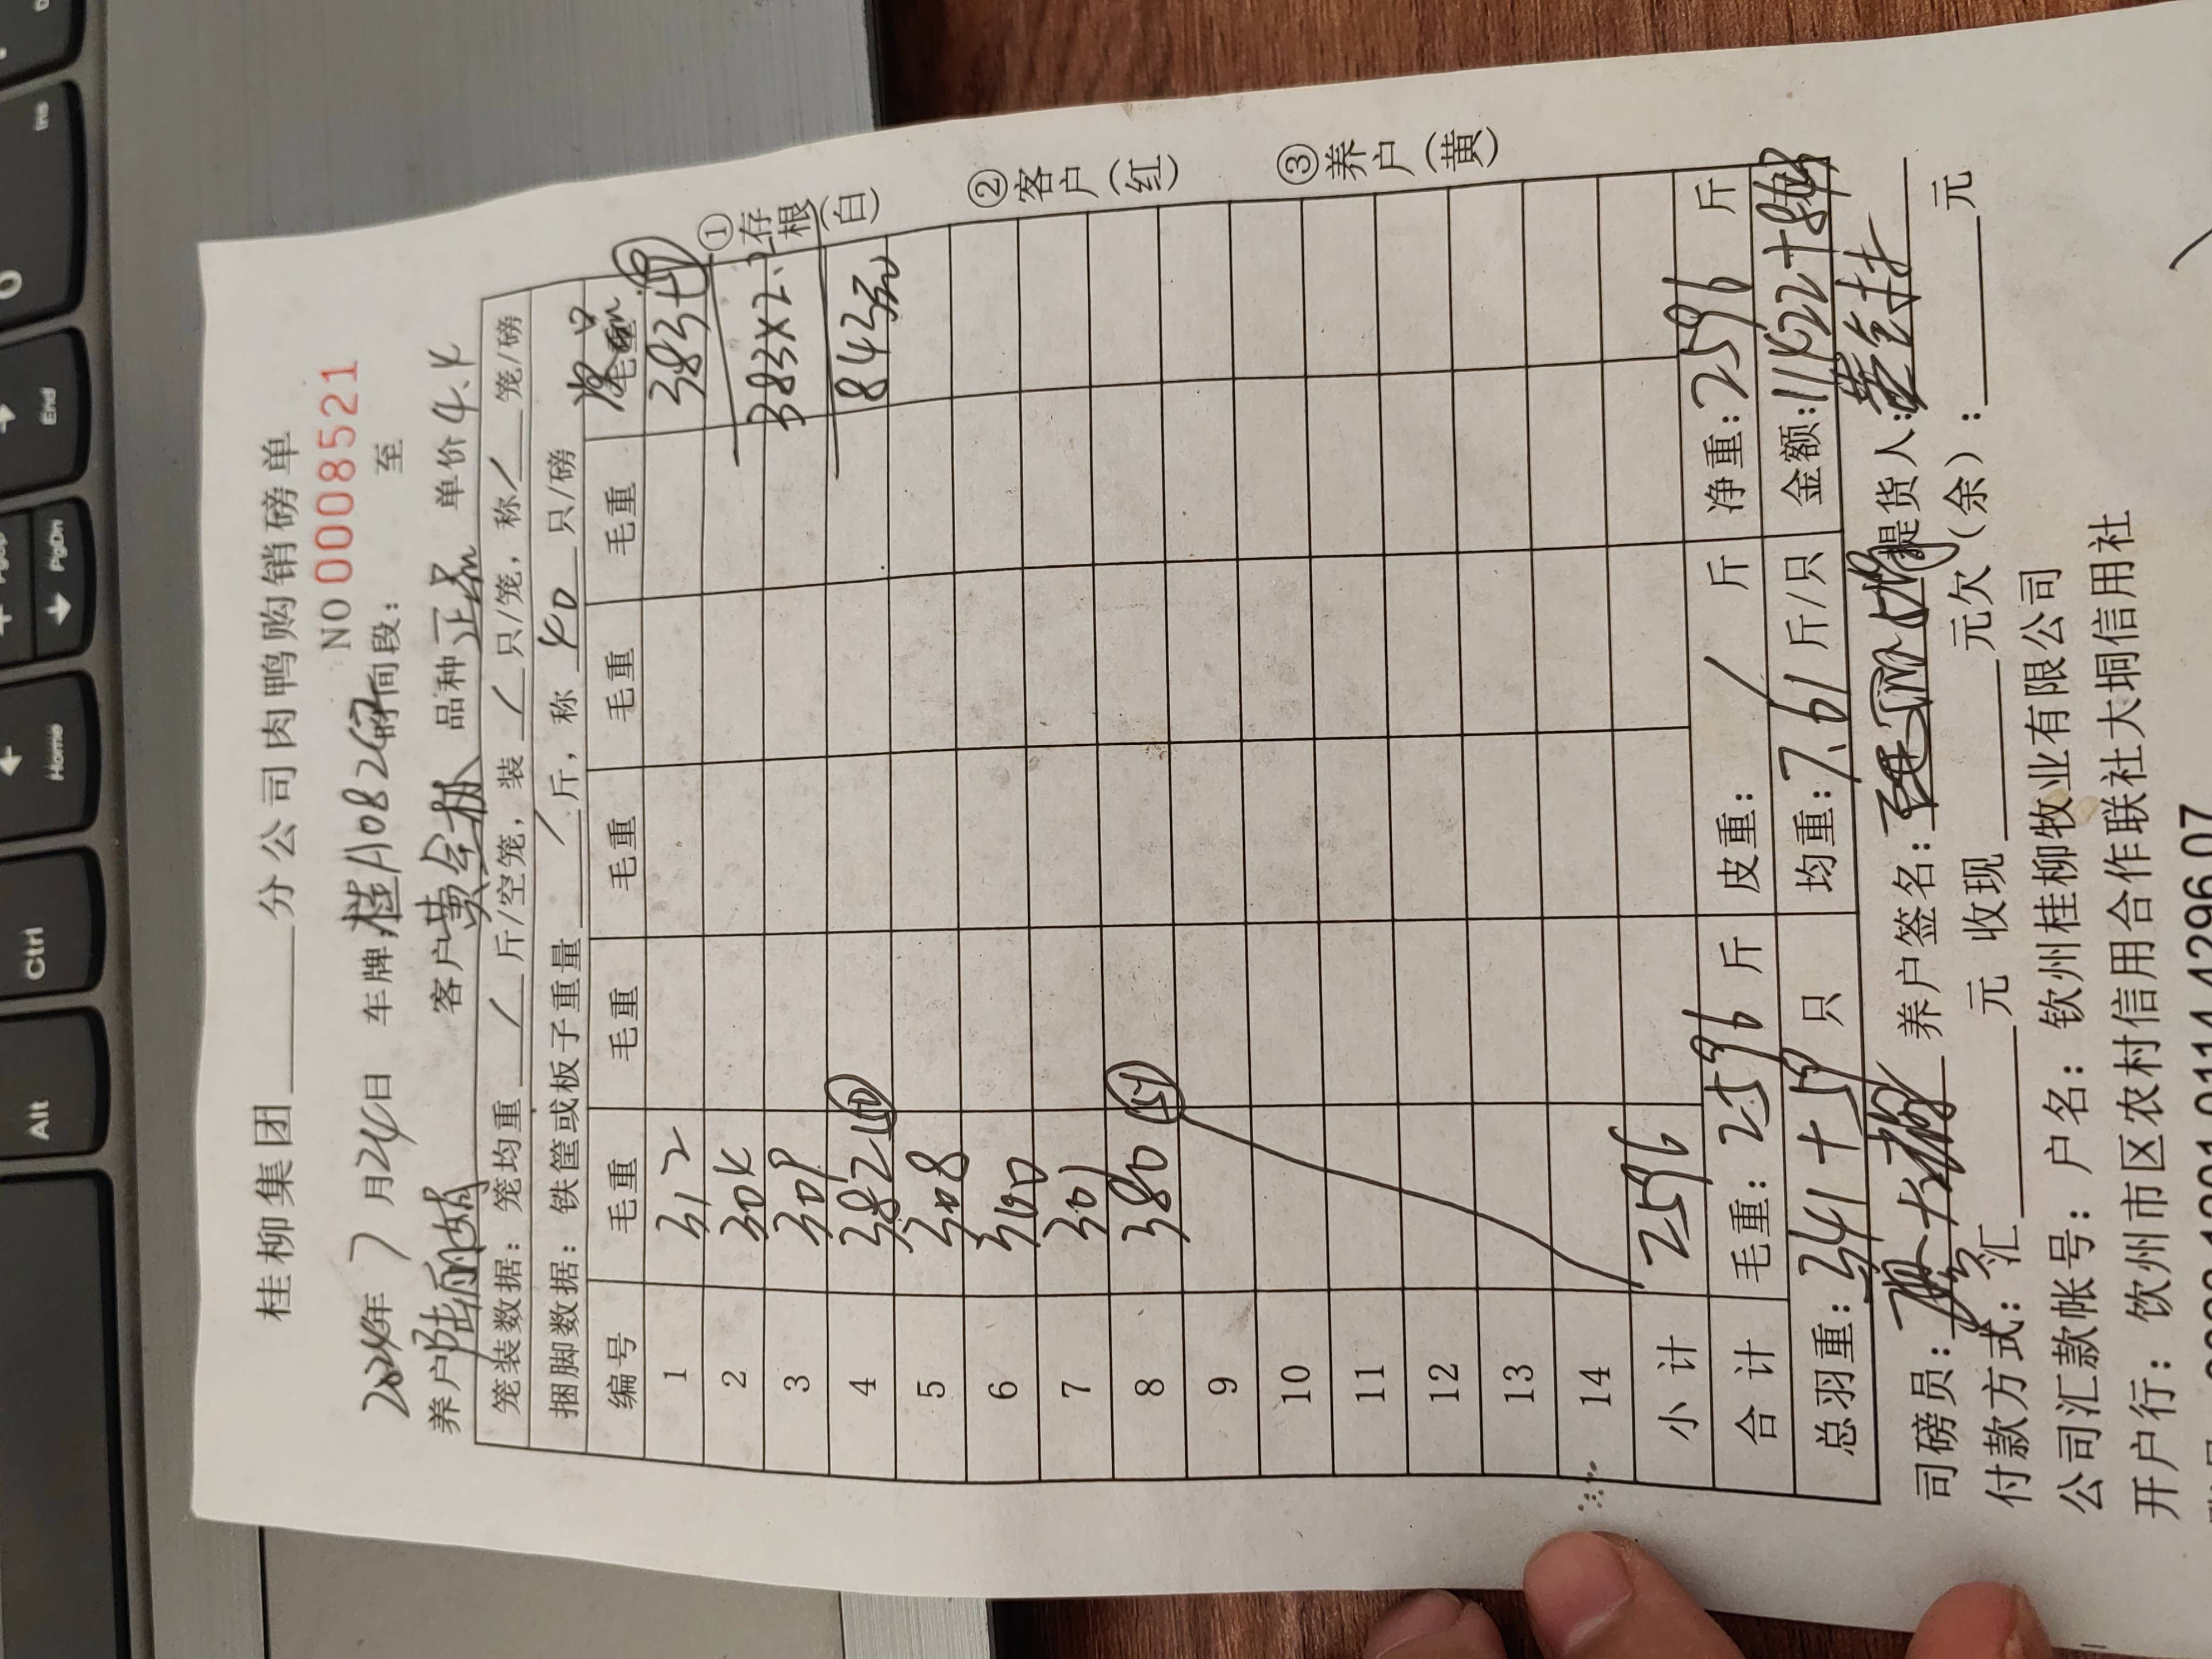 桂柳集团______分公司肉鸭购销磅单
NO 0008521
2024年7月24日 车牌:桂A082G7 时间段: 至
养户 陆丽娟 客户 黄全林 品种 正品 单价 4.4
笼装数据: 笼均重 / 斤/空笼, 装 / 只/笼, 称 / 笼/磅
捆脚数据: 铁筐或板子重量 / 斤, 称 40 只/磅
编号 毛重 毛重 毛重 毛重 毛重 毛重
1 312 383
2 304 383×2.2
3 309 843元
4 382
5 308
6 300
7 301
8 380
9
10
11
12
13
14
小计 2596
合计 毛重: 2596 斤 皮重: / 斤 净重: 2596 斤
总羽重: 341+ 只 均重: 7.61 斤/只 金额: 11422+843
司磅员: 养户签名: 提货人:
付款方式: 汇______元 收现______元欠(余):______元
公司汇款帐号: 户名: 钦州桂柳牧业有限公司
开户行: 钦州市区农村信用合作联社大垌信用社
①存根(白)
②客户(红)
③养户(黄)
Alt
Ctrl
Home
PgUp
PgDn
End
Ins
0